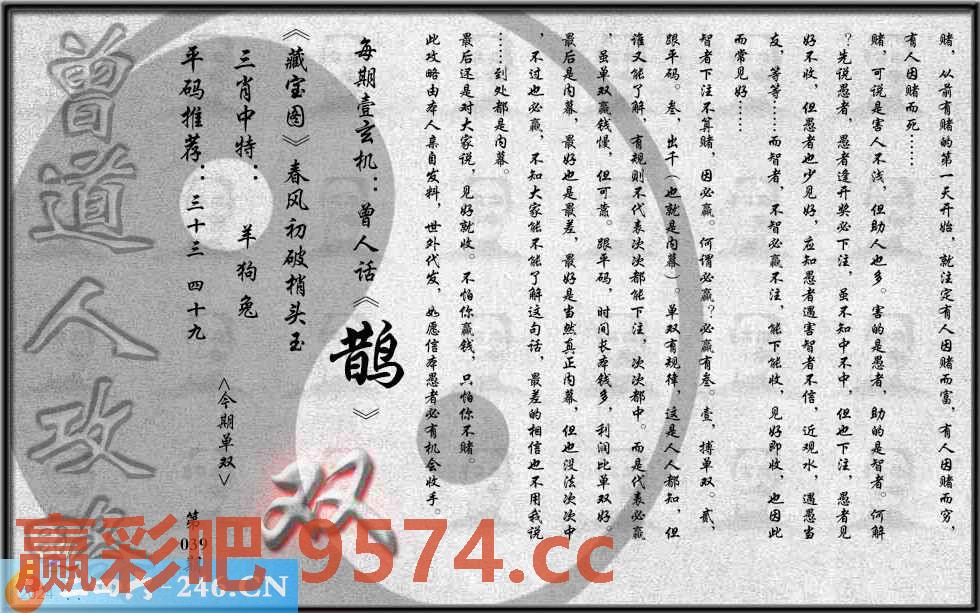 赌，从前有赌的第一天开始，就注定有人因赌而富，有人因赌而穷，
有人因赌而死……
赌，可说是害人不浅，但助人也多。害的是愚者，助的是智者。何解
？先说愚者，愚者逢开奖必下注，虽不知中不中，但也下注，愚者见
好不收，但愚者也少见好，应知愚者遇害智者不信，近观水，遇愚当
友，等等……而智者，不智必赢不注，能下能收，见好即收，也因此
而常见好……
智者下注不算赌，因必赢。何谓必赢？必赢有叁。壹，搏单双。贰，
跟平码。叁，出千（也就是内幕）。单双有规律，这是人人都知，但
谁又能了解，有规则不代表次次都能下注，次次都中。而是代表必赢
，虽单双赢钱慢，但可靠。跟平码，时间长本钱多，利润比单双好。
最后是内幕，最好也是最差，最好是当然真正内幕，但也没法次次中
，不过也必赢，不知大家能不能了解这句话，最差的相信也不用我说
……到处都是内幕。
最后还是对大家说，见好就收。不怕你赢钱，只怕你不赌。
此攻略由本人亲自发料，世外代发，如愿信本愚者必有机会收手。
每期壹玄机：曾人话《鹊》
《藏宝图》春风初破梢头玉
三肖中特：羊狗兔
平码推荐：三十三 四十九
<今期单双>
双
第039
曾道人攻
赢彩吧 9574.cc
-246.CN